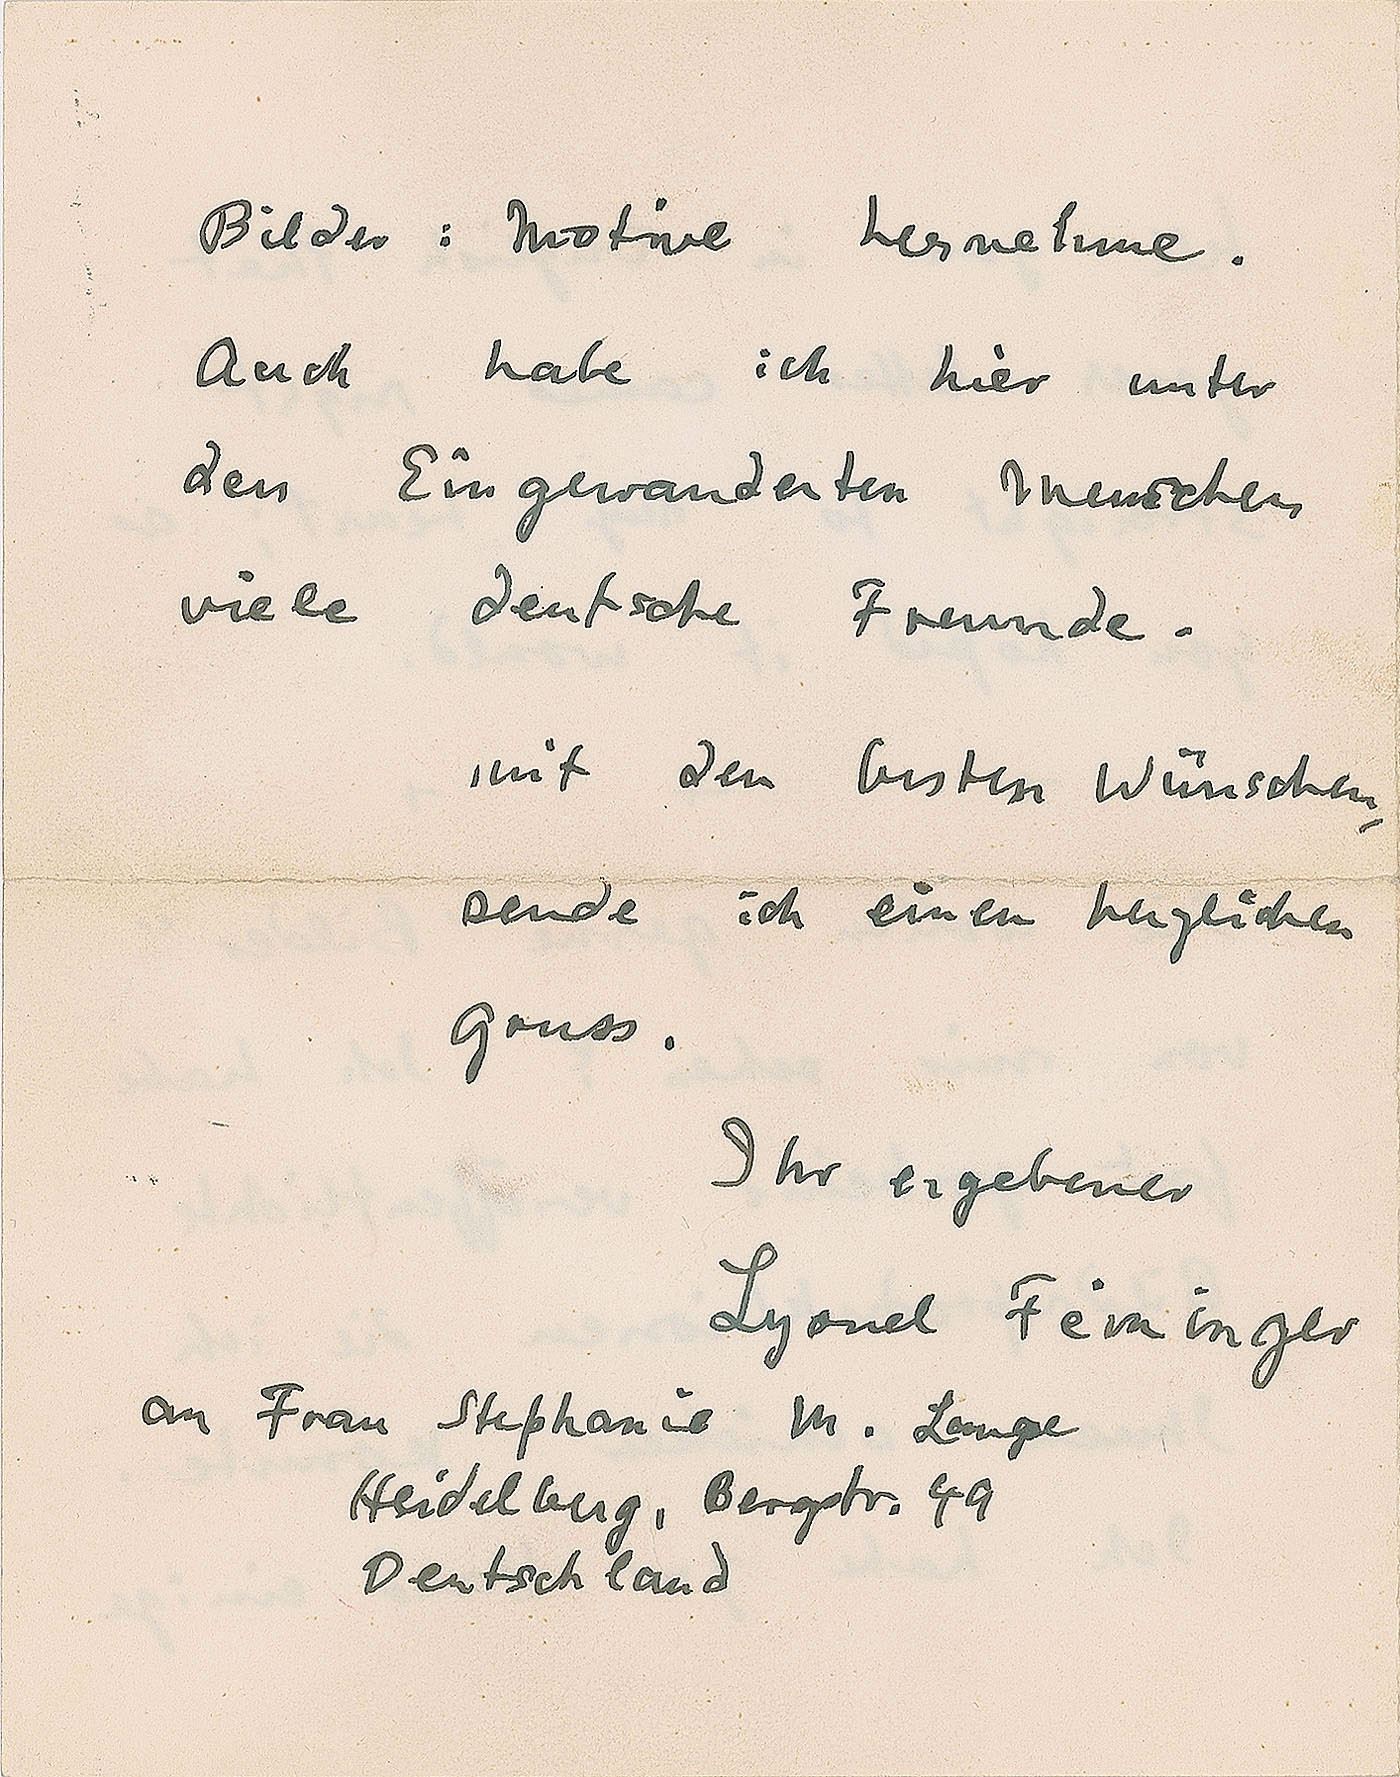 Bilder : Motive hernehme .
Auch habe ich hier unter
den Eingewanderten Menschen
viele deutsche Freunde .
mit den besten Wünschen,
sende ich einen herzlichen
Gruss .
Ihr ergebener
Lyonel Feininger
an Frau Stephanie M. Lange
Heidelberg, Bergstr. 49
Deutschland